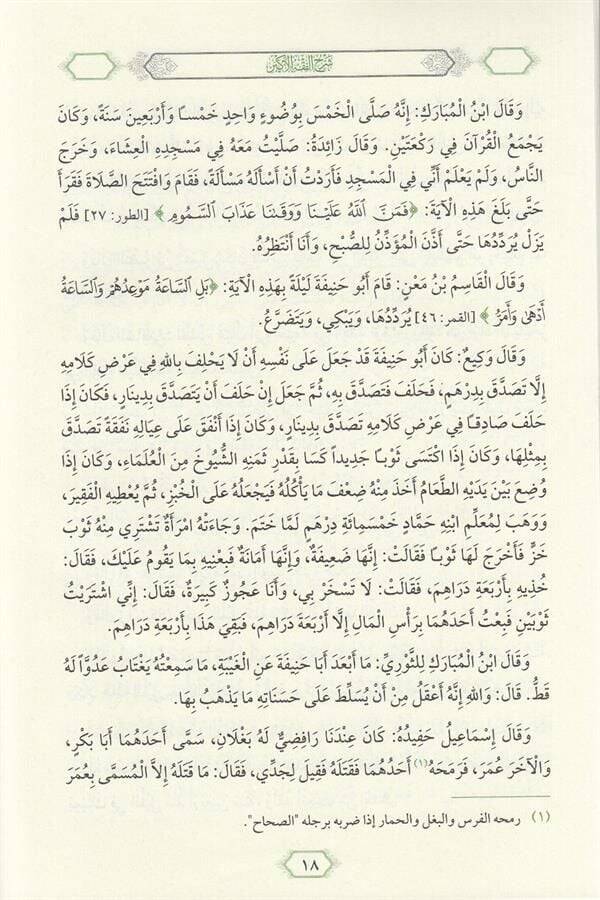 شرح الفقه الأكبر
وَقَالَ ابْنُ الْمُبَارَكِ: إِنَّهُ صَلَّى الْخَمْسَ بِوُضُوءٍ وَاحِدٍ خَمْسًا وَأَرْبَعِينَ سَنَةً، وَكَانَ
يَجْمَعُ الْقُرْآنَ فِي رَكْعَتَيْنِ. وَقَالَ زَائِدَةُ: صَلَّيْتُ مَعَهُ فِي مَسْجِدِهِ الْعِشَاءَ، وَخَرَجَ
النَّاسُ، وَلَمْ يَعْلَمْ أَنِّي فِي الْمَسْجِدِ فَأَرَدْتُ أَنْ أَسْأَلَهُ مَسْأَلَةً، فَقَامَ وَافْتَتَحَ الصَّلَاةَ فَقَرَأَ
حَتَّى بَلَغَ هَذِهِ الْآيَةَ: ﴿فَمَنَّ اللَّهُ عَلَيْنَا وَوَقَىٰنَا عَذَابَ السَّمُومِ﴾ [الطور: ٢٧] فَلَمْ
يَزَلْ يُرَدِّدُهَا حَتَّى أَذَّنَ الْمُؤَذِّنُ لِلصُّبْحِ، وَأَنَا أَنْتَظِرُهُ.
وَقَالَ الْقَاسِمُ بْنُ مَعْنٍ: قَامَ أَبُو حَنِيفَةَ لَيْلَةً بِهَذِهِ الْآيَةِ: ﴿بَلِ السَّاعَةُ مَوْعِدُهُمْ وَالسَّاعَةُ
أَدْهَىٰ وَأَمَرُّ﴾ [القمر: ٤٦] يُرَدِّدُهَا، وَيَبْكِي، وَيَتَضَرَّعُ.
وَقَالَ وَكِيعٌ: كَانَ أَبُو حَنِيفَةَ قَدْ جَعَلَ عَلَى نَفْسِهِ أَنْ لَا يَحْلِفَ بِاللهِ فِي عَرْضِ كَلَامِهِ
إِلَّا تَصَدَّقَ بِدِرْهَمٍ، فَحَلَفَ فَتَصَدَّقَ بِهِ، ثُمَّ جَعَلَ إِنْ حَلَفَ أَنْ يَتَصَدَّقَ بِدِينَارٍ، فَكَانَ إِذَا
حَلَفَ صَادِقًا فِي عَرْضِ كَلَامِهِ تَصَدَّقَ بِدِينَارٍ، وَكَانَ إِذَا أَنْفَقَ عَلَى عِيَالِهِ نَفَقَةً تَصَدَّقَ
بِمِثْلِهَا، وَكَانَ إِذَا اكْتَسَى ثَوْبًا جَدِيداً كَسَا بِقَدْرِ ثَمَنِهِ الشُّيُوخَ مِنَ الْعُلَمَاءِ، وَكَانَ إِذَا
وُضِعَ بَيْنَ يَدَيْهِ الطَّعَامُ أَخَذَ مِنْهُ ضِعْفَ مَا يَأْكُلُهُ فَيَجْعَلُهُ عَلَى الْخُبْزِ، ثُمَّ يُعْطِيهِ الْفَقِيرَ،
وَوَهَبَ لِمُعَلِّمِ ابْنِهِ حَمَّادٍ خَمْسَمِائَةِ دِرْهَمٍ لَمَّا خَتَمَ. وَجَاءَتْهُ امْرَأَةٌ تَشْتَرِي مِنْهُ ثَوْبَ
خَزٍّ فَأَخْرَجَ لَهَا ثَوْبًا فَقَالَتْ: إِنَّهَا ضَعِيفَةٌ، وَإِنَّهَا أَمَانَةٌ فَبِعْنِيهِ بِمَا يَقُومُ عَلَيْكَ، فَقَالَ:
خُذِيهِ بِأَرْبَعَةِ دَرَاهِمَ، فَقَالَتْ: لَا تَسْخَرْ بِي، وَأَنَا عَجُوزٌ كَبِيرَةٌ، فَقَالَ: إِنِّي اشْتَرَيْتُ
ثَوْبَيْنِ فَبِعْتُ أَحَدَهُمَا بِرَأْسِ الْمَالِ إِلَّا أَرْبَعَةَ دَرَاهِمَ، فَبَقِيَ هَذَا بِأَرْبَعَةِ دَرَاهِمَ.
وَقَالَ ابْنُ الْمُبَارَكِ لِلثَّوْرِيِّ: مَا أَبْعَدَ أَبَا حَنِيفَةَ عَنِ الْغَيْبَةِ، مَا سَمِعْتُهُ يَغْتَابُ عَدُوًّا لَهُ
قَطُّ. قَالَ: وَاللهِ إِنَّهُ أَعْقَلُ مِنْ أَنْ يُسَلِّطَ عَلَى حَسَنَاتِهِ مَا يَذْهَبُ بِهَا.
وَقَالَ إِسْمَاعِيلُ حَفِيدُهُ: كَانَ عِنْدَنَا رَافِضِيٌّ لَهُ بَغْلَانِ، سَمَّى أَحَدَهُمَا أَبَا بَكْرٍ،
وَالْآخَرَ عُمَرَ، فَرَمَحَهُ(١) أَحَدُهُمَا فَقَتَلَهُ فَقِيلَ لِجَدِّي، فَقَالَ: مَا قَتَلَهُ إِلاَّ الْمُسَمَّى بِعُمَرَ
(١) رمحه الفرس والبغل والحمار إذا ضربه برجله "الصحاح".
١٨